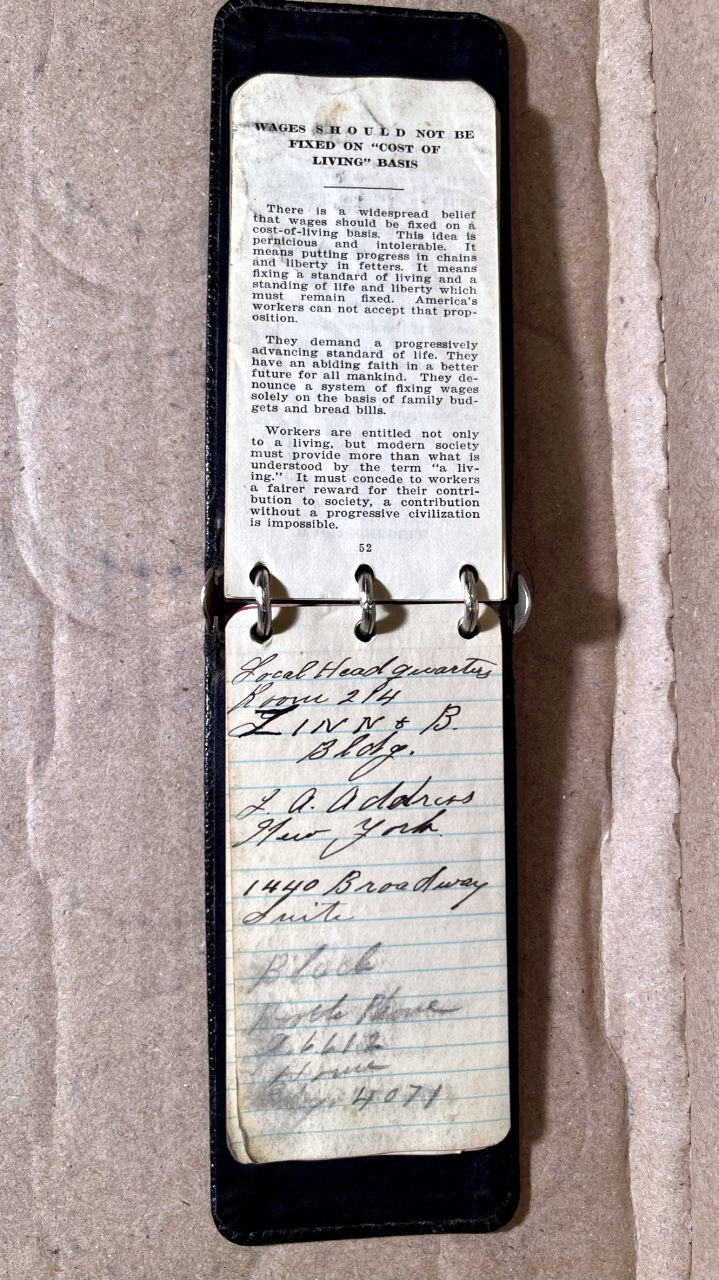 WAGES SHOULD NOT BE
FIXED ON “COST OF
LIVING” BASIS
There is a widespread belief
that wages should be fixed on a
cost-of-living basis. This idea is
pernicious and intolerable. It
means putting progress in chains
and liberty in fetters. It means
fixing a standard of living and a
standing of life and liberty which
must remain fixed. America's
workers can not accept that prop-
osition.
They demand a progressively
advancing standard of life. They
have an abiding faith in a better
future for all mankind. They de-
nounce a system of fixing wages
solely on the basis of family bud-
gets and bread bills.
Workers are entitled not only
to a living, but modern society
must provide more than what is
understood by the term “a liv-
ing.” It must concede to workers
a fairer reward for their contri-
bution to society, a contribution
without a progressive civilization
is impossible.
52
Local Headquarters
Room 214
& B.
Bldg.
A. Address
New York
1440 Broadway
Suite
Phone
6612
Home
4071